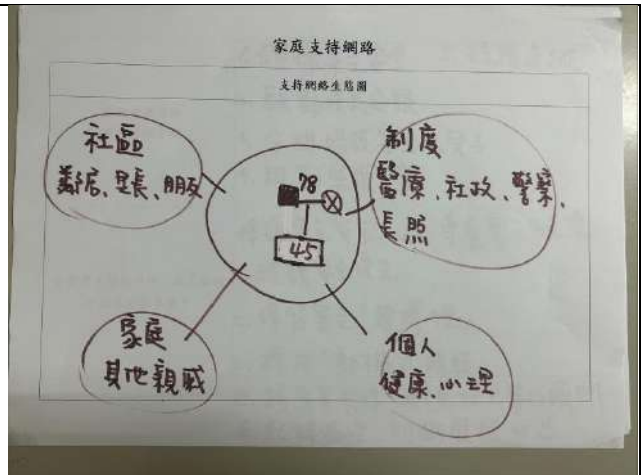 家庭支持網路
支持網絡生態圖
社區
鄰居、里長、朋友
制度
醫療、社政、警察、
長照
78
45
家庭
其他親戚
個人
健康、心理